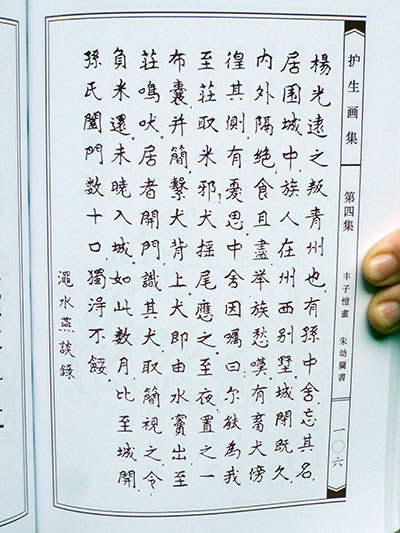 护生画集
第四集
丰子愷畫
朱幼蘭書
一〇六
楊光遠之叛青州也。有孫中舍。忘其名。
居围城中。族人在州西别墅。城閉既久。
内外隔绝。食且盡。举族愁嘆。有畜犬傍
徨其側。有憂思。中舍因嘱曰尔能為我
至莊取米邪。犬摇尾應之。至夜置之一
布囊。并簡繫犬背上。犬即由水竇出。至
莊鳴吠。居者開門。識其犬。取簡视之。令
負米還。未曉入城。如此数月。比至城開。
孫氏闔門数十口。獨淂不餒。
澠水燕談錄